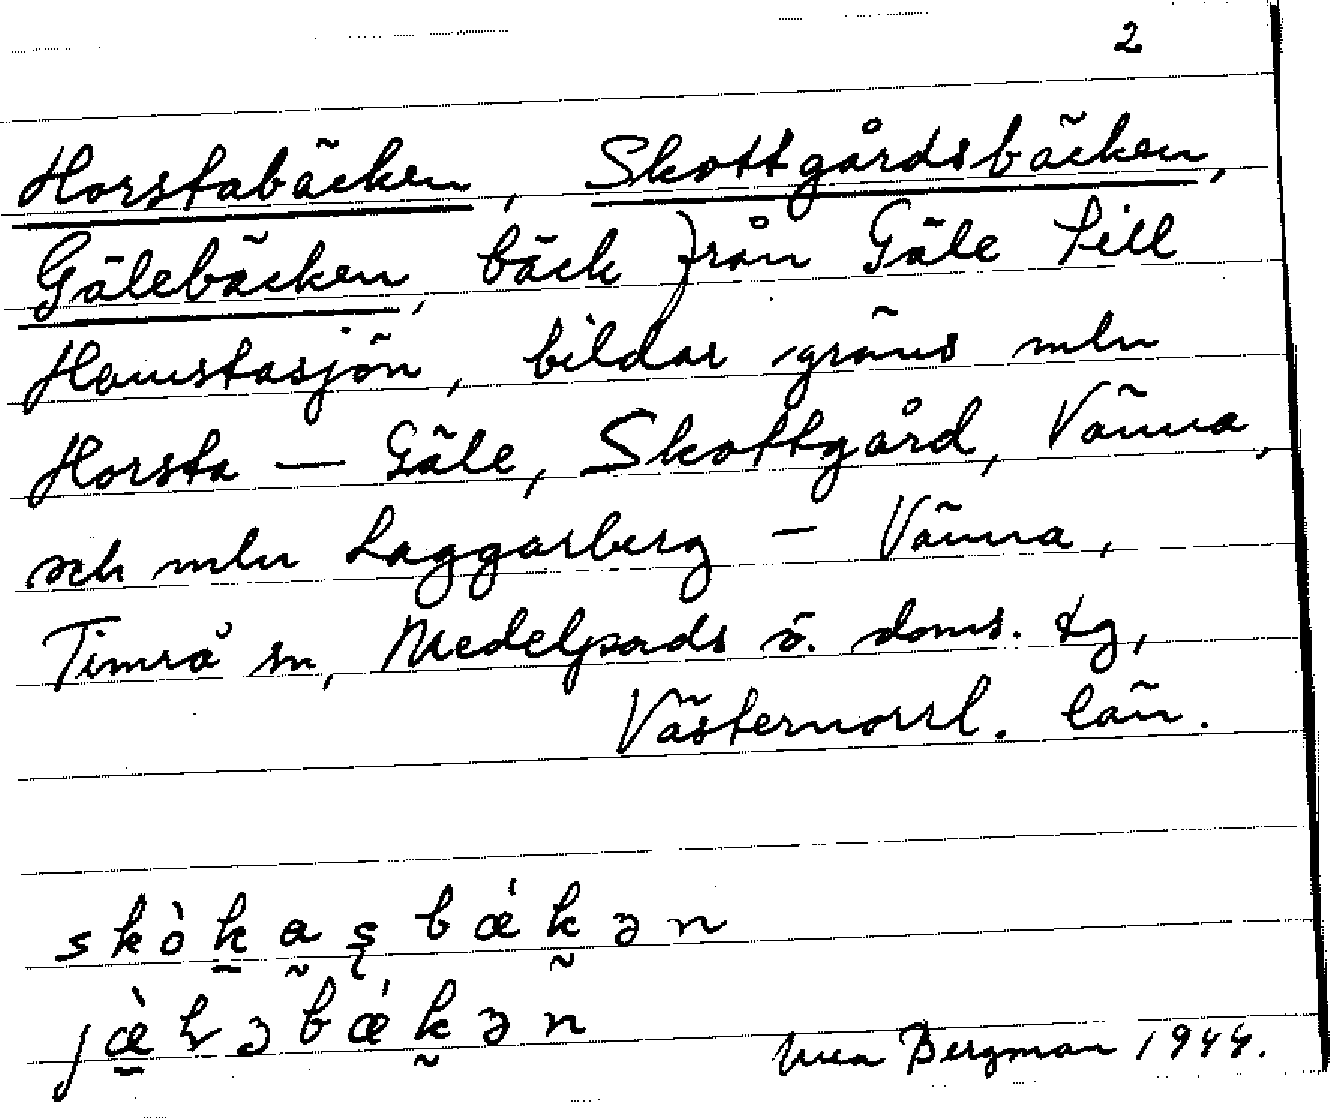 2
Horstabäcken, Skottgårdsbäcken,
Gälebäcken, bäck från Gäle till
Hamstasjön, bildar gräns mln
Horsta — Gäle, Skottgård, Vänna,
och mln Laggarberg - Vänna,
Timrå sn, Medelpads ö. doms. tg,
Västernorrl. län.
Bergman 1944.